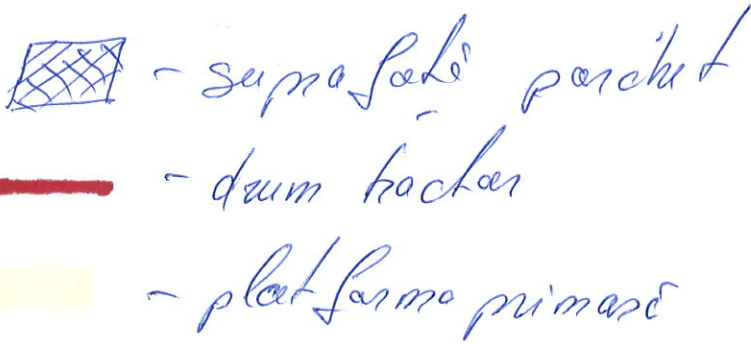 - suprafață parchet
- drum tractor
- platforma primară